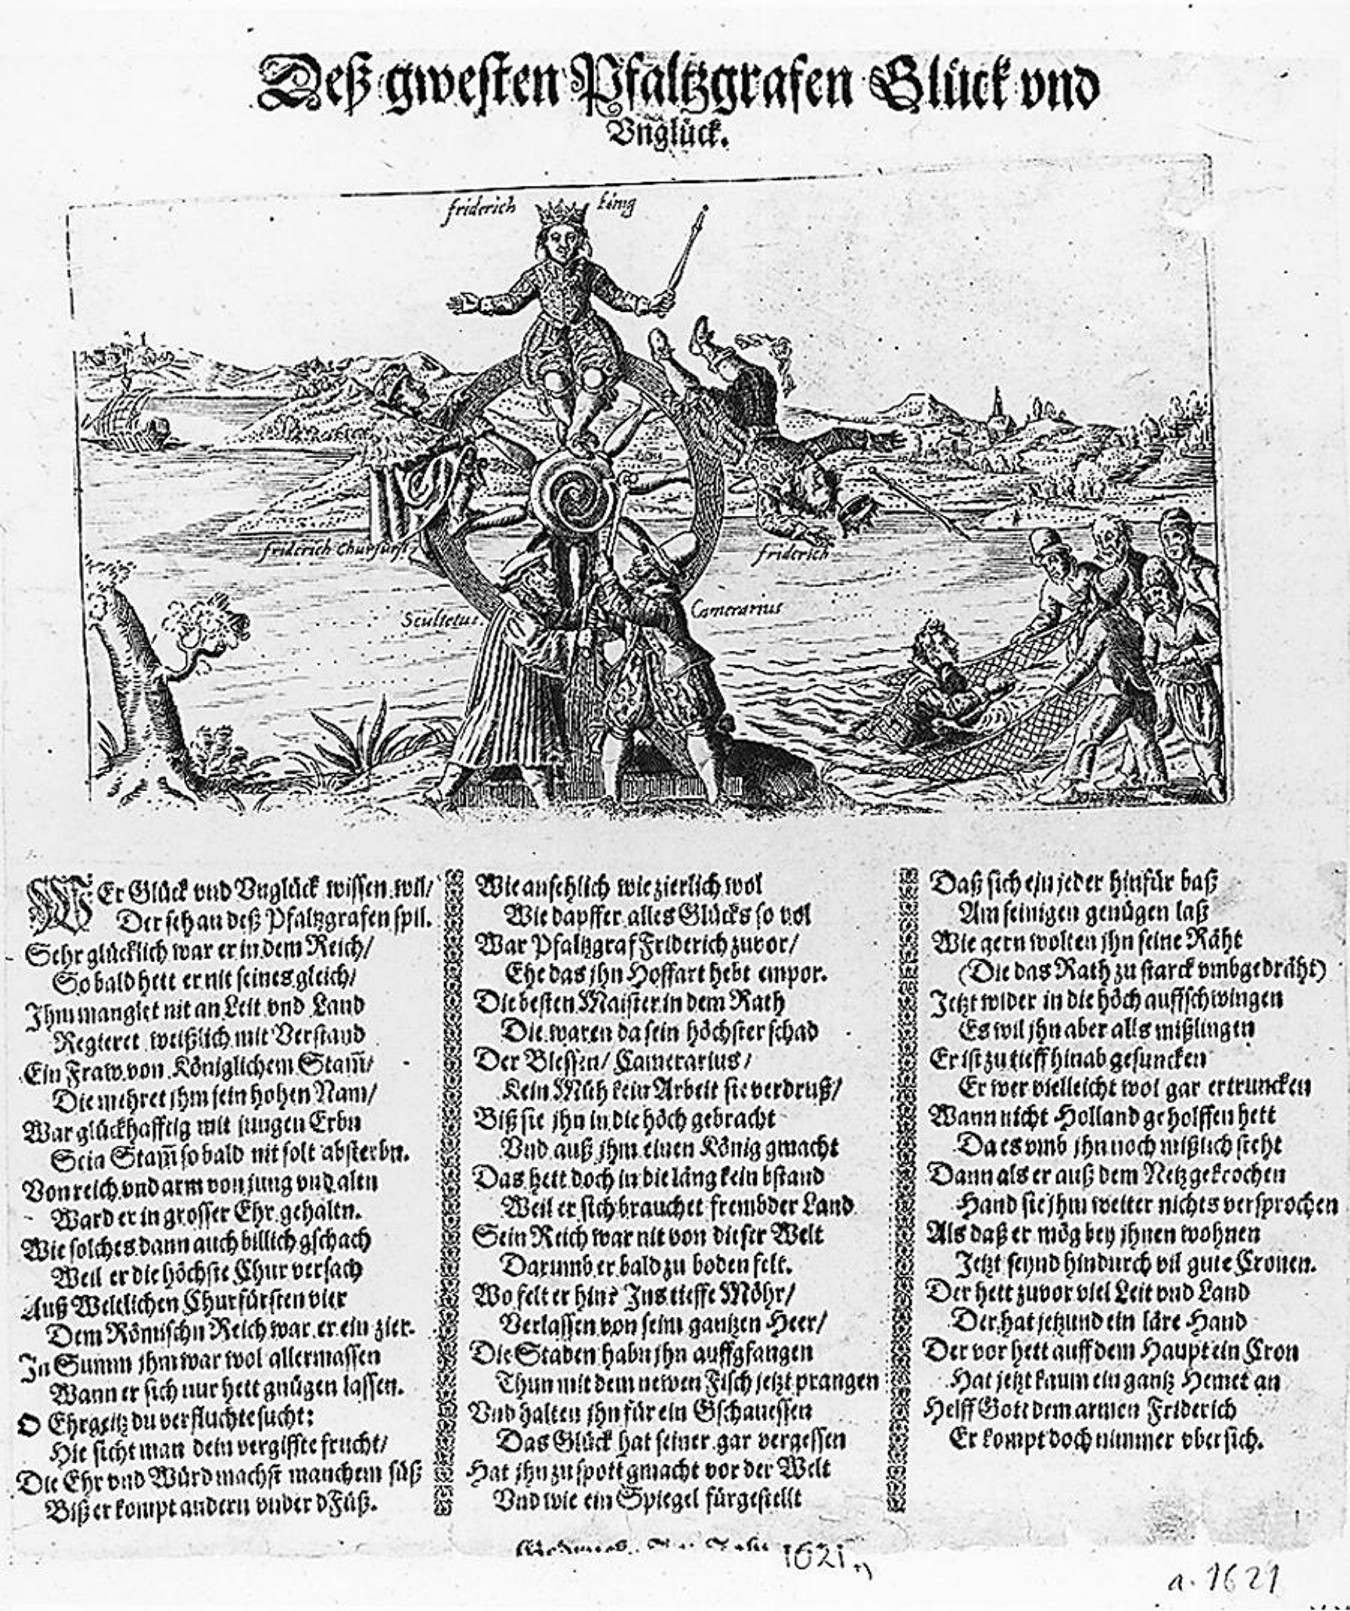 Deß gwesten Pfaltzgrafen Glück vnd
Vnglück.
friderich König
friderich Churfürst
friderich
Scultetus
Camerarius
WEr Glück vnd Vnglück wissen wil/
Der schau deß Pfaltzgrafen spil.
Sehr glücklich war er in dem Reich/
So bald hett er nit seines gleich/
Ihm manglet nit an Leit vnd Land
Regieret weißlich mit Verstand
Ein Fraw von Königlichem Stam̃/
Die mehret ihm sein hohen Nam/
War glückhafftig mit jungen Erbn
Sein Stam̃ so bald nit solt absterbn.
Von reich vnd arm von jung vnd altn
Ward er in grosser Ehr gehaltn.
Wie solches dann auch billich gschach
Weil er die höchste Chur versach
Auß Weltlichen Churfürsten vier
Dem Römischn Reich war er ein zier.
In Summ ihm war wol allermassen
Wann er sich nur hett gnügen lassen.
O Ehrgeitz du verfluchte sucht:
Hie sicht man dein vergiffte frucht/
Die Ehr vnd Würd machst manchem süß
Biß er kompt andern vnder d Füß.
Wie ansehlich wie zierlich wol
Wie dapffer alles Glücks so vol
War Pfaltzgraf Friderich zuvor/
Ehe das jhn Hoffart hebt empor.
Die besten Maister in dem Rath
Die waren da sein höchster schad
Der Blessen/ Camerarius/
Kein Müh kein Arbeit sie verdruß/
Biß sie jhn in die höch gebracht
Vnd auß jhm einen König gmacht
Das hett doch in die läng kein bstand
Weil er sich brauchet frembder Land
Sein Reich war nit von dieser Welt
Darumb er bald zu boden felt.
Wo felt er hin? Ins tieffe Möhr/
Verlassen von seim gantzen Heer/
Die Staden habn jhn auffgfangen
Thun mit dem newen Fisch jetzt prangen
Vnd halten jhn für ein Gschauessen
Das Glück hat seiner gar vergessen
Hat jhn zu spott gmacht vor der Welt
Vnd wie ein Spiegel fürgestellt
Daß sich ein jeder hinfür baß
Am seinigen genügen laß
Wie gern wolten jhn seine Räht
(Die das Rath zu starck vmbgedräht)
Jetzt wider in die höch auffschwingen
Es wil jhn aber alls mißlingen
Er ist zu tieff hinab gesuncken
Er wer vielleicht wol gar ertruncken
Wann nicht Holland geholffen hett
Da es vmb jhn noch mißlich steht
Dann als er auß dem Netz gekrochen
Hand sie jhm weiter nichts versprochen
Als daß er mög bey jhnen wohnen
Jetzt seynd hindurch vil gute Cronen.
Der hett zuvor viel Leit vnd Land
Der hat jetzund ein läre Hand
Der vor hett auff dem Haupt ein Cron
Hat jetzt kaum ein gantz Hemet an
Helff Gott dem armen Friderich
Er kompt doch nimmer vber sich.
1621
a. 1621